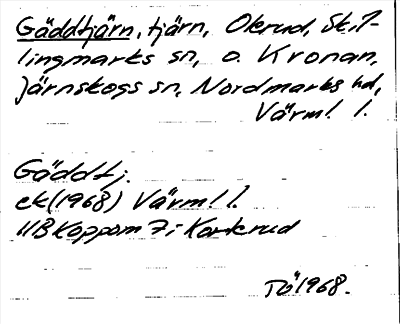 Gäddtjärn, tjärn, Okrud, Skil-
lingmarks sn, o. Kronan,
Järnskogs sn, Nordmarks hd,
Värml. l.
Gäddtj.
ek (1968) Värml. l.
11B Koppom 7i Korkrud
Tö 1968.